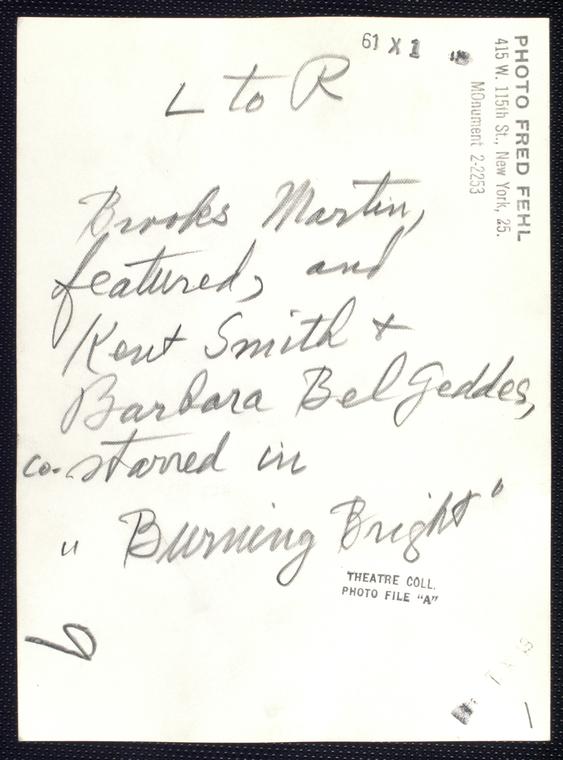 61 X 1
L to R
Brooks Martin,
featured, and
Kent Smith +
Barbara Bel Geddes,
co-starred in
"Burning Bright"
THEATRE COLL.
PHOTO FILE "A"
6
PHOTO FRED FEHL
415 W. 115th St., New York, 25.
MOnument 2-2253